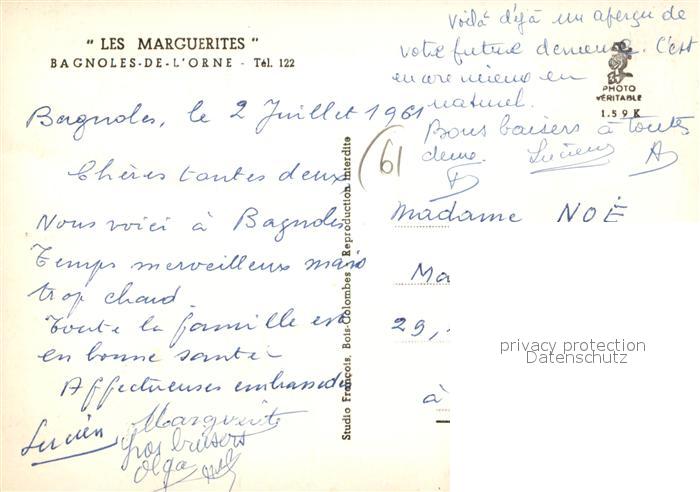 " LES MARGUERITES "
BAGNOLES-DE-L'ORNE - Tél. 122
Bagnoles, le 2 Juillet 1961
Chères toutes deux
Nous voici à Bagnoles
Temps merveilleux mais
trop chaud.
Toute la famille est
en bonne santé -
Affectueuses embrassades
Lucien
Marguerite
Gros baisers
Olga
Studio François, Bois-Colombes. Reproduction Interdite
61
Voilà déjà un aperçu de
votre future demeure. C'est
encore mieux en
naturel.
Bons baisers à toutes
deux. Lucienne
PHOTO
VÉRITABLE
1.59 K
Madame NOÉ
Ma
29,
à
privacy protection
Datenschutz